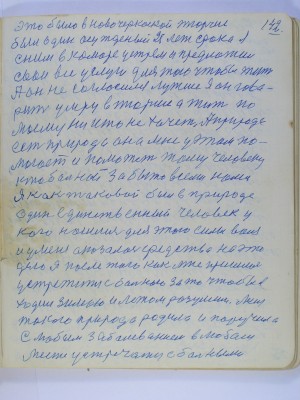 142.
Это было в новочеркской тюрме
был один осужденый 15 лет срока я
сним в камере устрем и предложил
свои все услуги для того чтобы жить
А он не согласился лутше я он гова-
рить умру в тюрме а жить по
моему никто не хочет. А природа
есть природа она мне у этом по-
могает и поможет тому человеку
кто больной забыто всеми нами
Я как таковой был в природе
один Единственный человек у
кого хватила для этого силы воля
и умения оказалося средство на это
дело Я после того как уже пришлося
устретится с больною за то чтобы её
ходить зимою и летом разутым. Меня
такого природа родила и получила
С любым заболеванием в любом
месте устречатся с больными